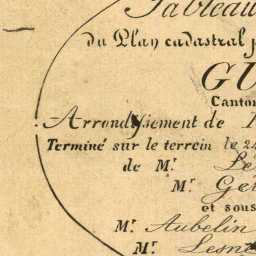 Tableau
du Plan cadastral p
GU
Canton
Arrondissement de
Terminé sur le terrein le 24
de Mr. Le
Mr. Ger
et sous
Mr. Aubelin
Mr. Lesne